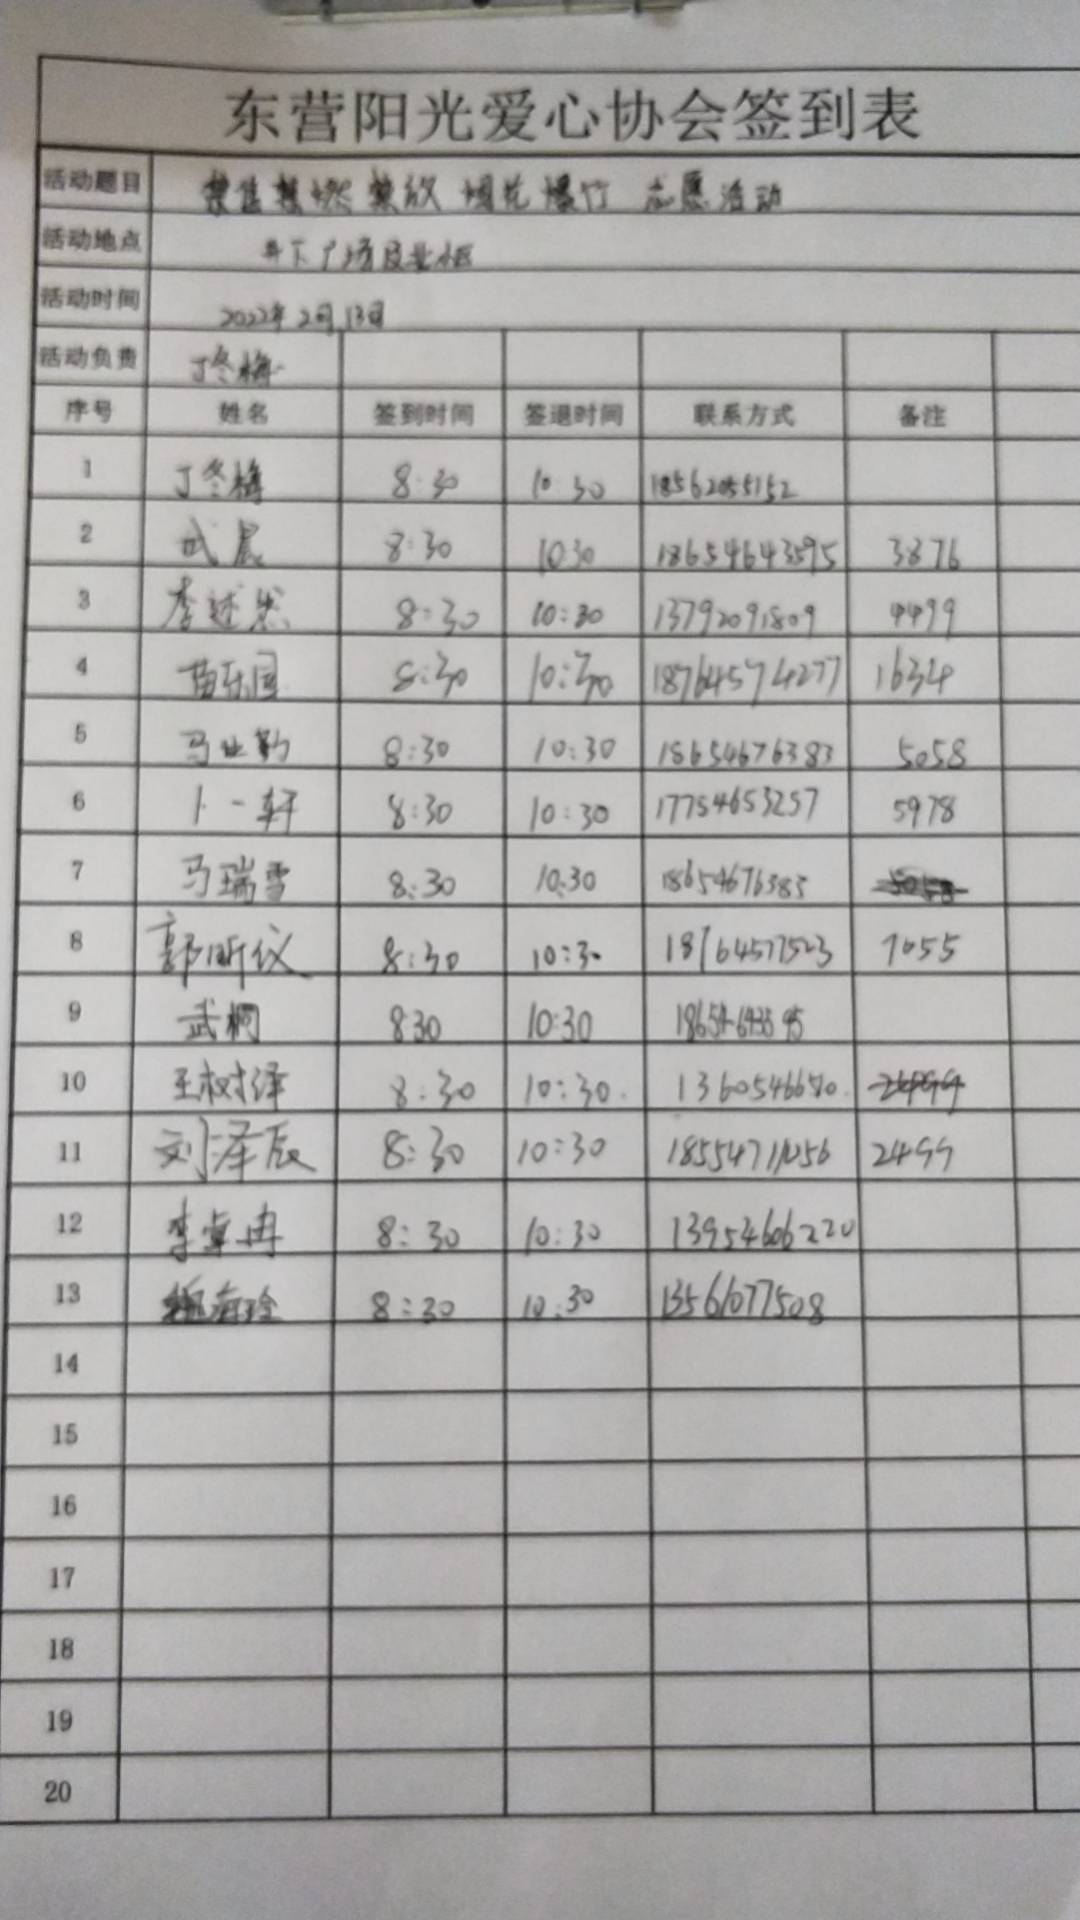 东营阳光爱心协会签到表
活动题目 禁售禁燃禁放 烟花爆竹 志愿活动
活动地点 井下广场及北小区
活动时间 2022年2月13日
活动负责 丁冬梅
序号 姓名 签到时间 签退时间 联系方式 备注
1 丁冬梅 8:30 10:30 18562055152
2 武晨 8:30 10:30 18654643595 3876
3 李述然 8:30 10:30 13792091809 4499
4 苗乐园 8:30 10:30 18764574277 1634
5 马业勤 8:30 10:30 18654676383 5058
6 卜一轩 8:30 10:30 17754653257 5978
7 马瑞雪 8:30 10:30 18654676383
8 郭昕仪 8:30 10:30 18764577523 7055
9 武桐 8:30 10:30 18654643595
10 王树泽 8:30 10:30
11 刘泽辰 8:30 10:30 2499
12 李卓冉 8:30 10:30 13954606220
13 8:30 10:30 13561077508
14
15
16
17
18
19
20